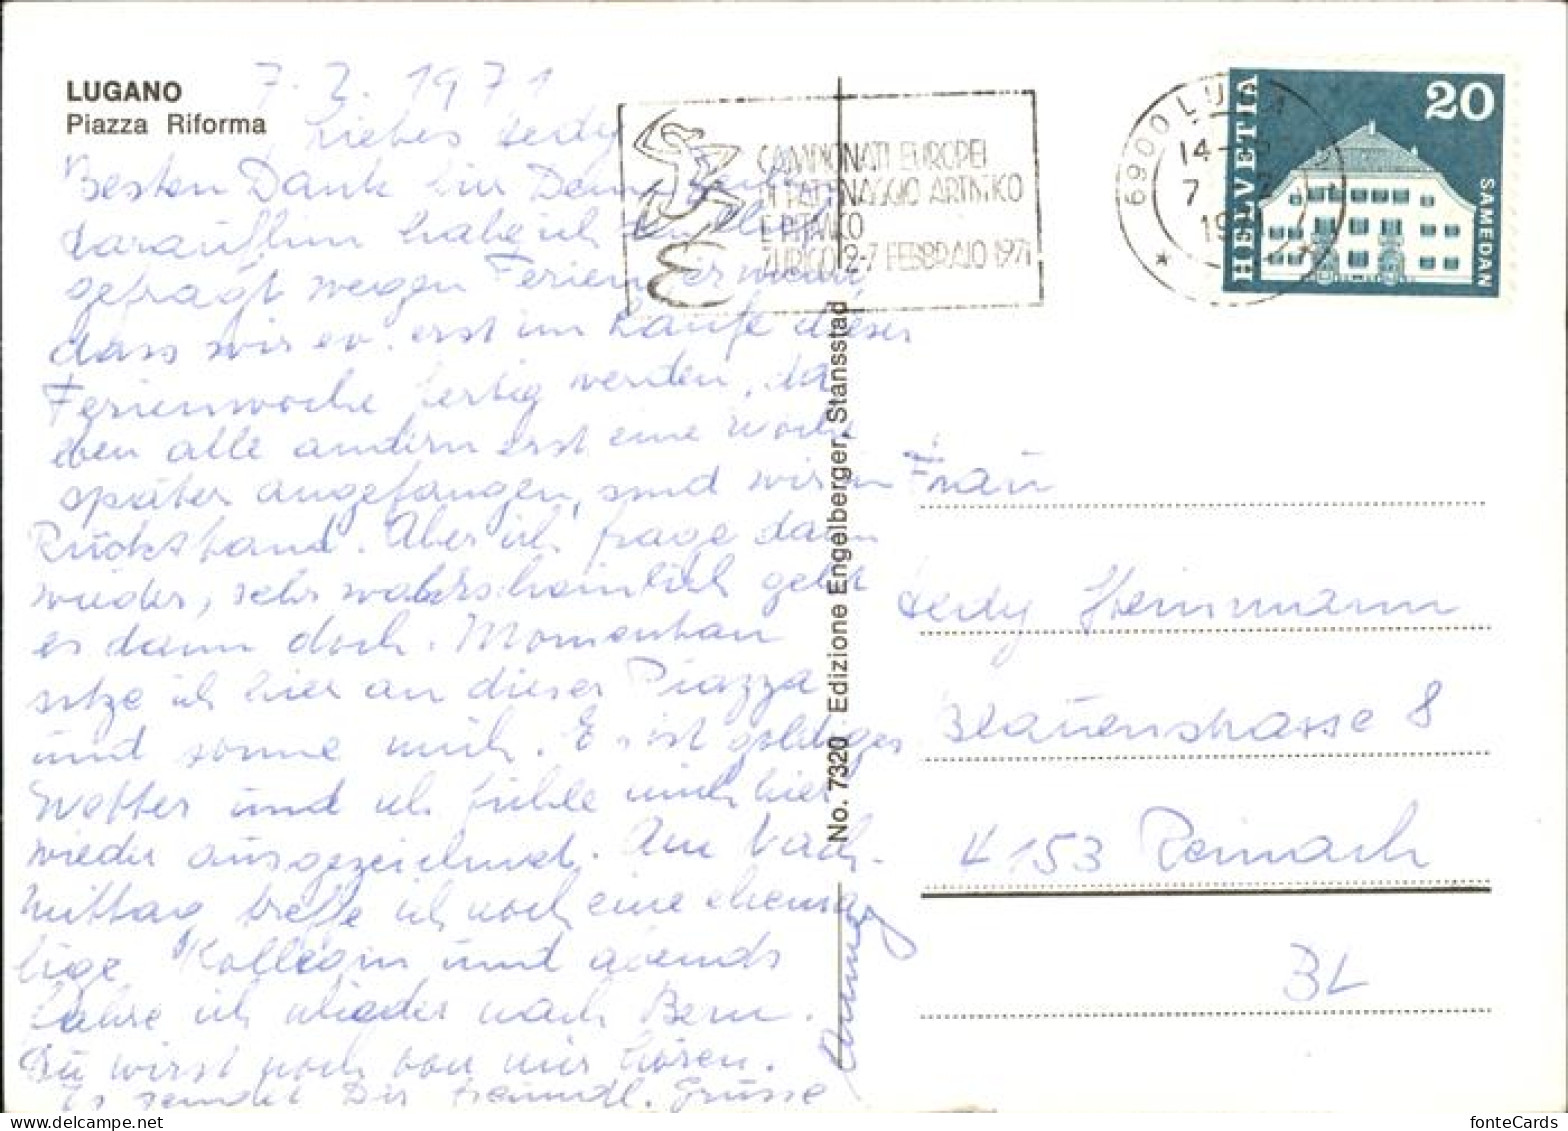 LUGANO
Piazza Riforma
7. 2. 1971
Liebes Hedy
Besten Dank für Deine
daraufhin habe ich
gefragt wegen Ferien, er meint
dass wir ev. erst im Laufe dieser
Ferienwoche fertig werden, da
eben alle andern erst eine Woche
später angefangen, sind wir im
Rückstand. Aber ich frage dann
wieder, sehr wahrscheinlich geht
es dann doch. Momentan
sitze ich hier an dieser Piazza
und sonne mich. Es ist goldiges
Wetter und ich fühle mich hier
wieder ausgezeichnet. Am Nach-
mittag treffe ich noch eine ehema-
lige Kollegin und abends
fahre ich wieder nach Bern.
Du wirst noch von mir hören.
Es sendet Dir freundl. Grüsse
No. 7320 Edizione Engelberger, Stansstad
CAMPIONATI EUROPEI
DI PATTINAGGIO ARTISTICO
E RITMICO
ZURIGO 2-7 FEBBRAIO 1971
6900 LUGANO
14-
7
19
HELVETIA
20
SAMEDAN
Frau
Hedy Heinimann
Blauenstrasse 8
4153 Reinach
BL
fonteCards